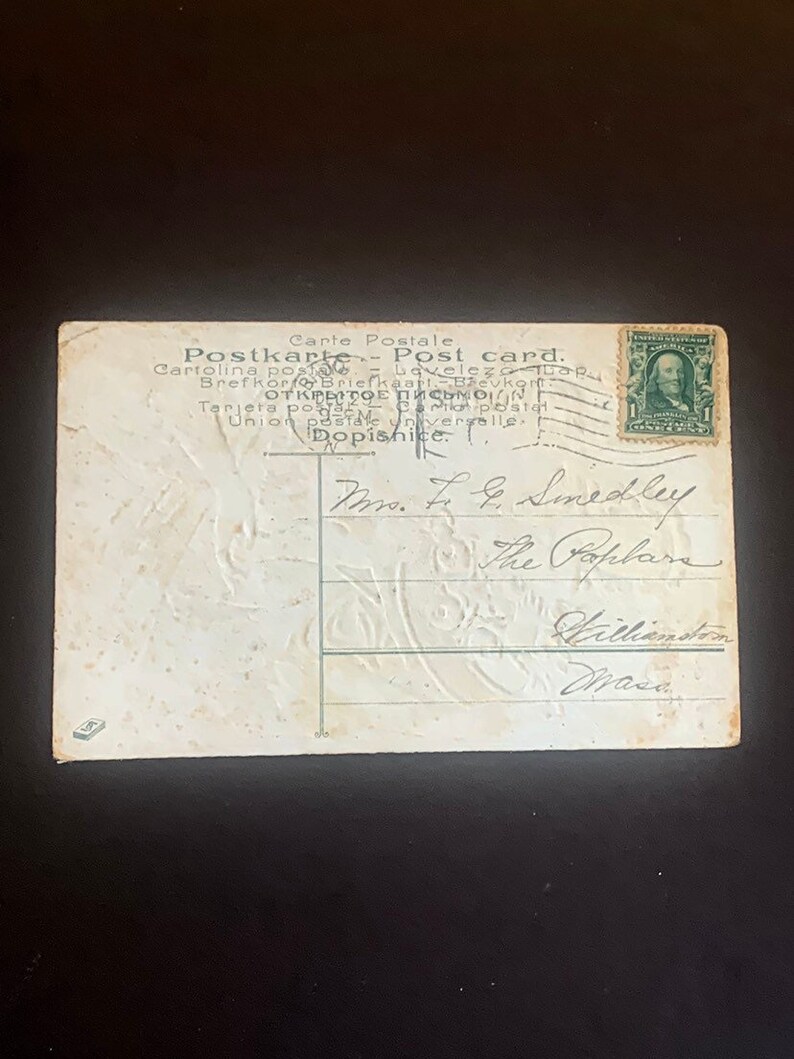 Carte Postale
Postkarte. - Post card.
Cartolina postale - Levelezo-Lap.
Brefkort-Briefkaart.-Brevkort.
ОТКРЫТОЕ ПИСЬМО
Tarjeta postal - Carto postal
Union postale universelle.
Dopisnice.
9 - M
UNITED STATES OF
AMERICA
1 1
POSTAGE
ONE CENT
Mrs. F. G. Smedley
The Poplars
Williamstown
Mass.